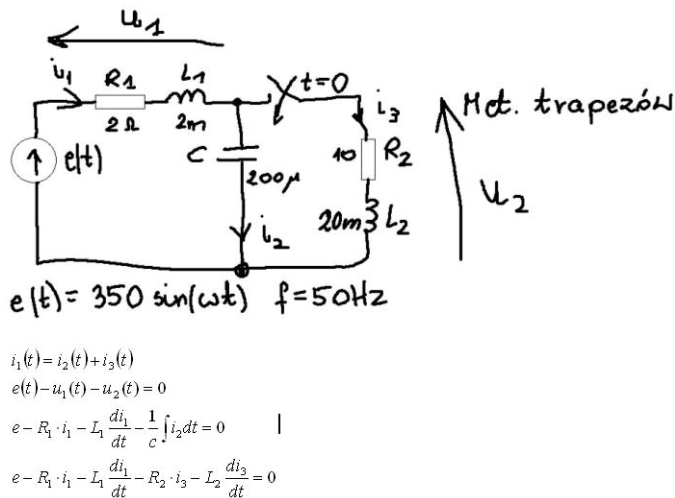 u1
i1 R1 L1 t=0
2Ω 2m
i3 Met. trapezów
e(t) C 200μ 10 R2
u2
i2 20m L2
e(t) = 350 sin(ωt) f=50Hz
i₁(t) = i₂(t) + i₃(t)
e(t) − u₁(t) − u₂(t) = 0
e − R₁·i₁ − L₁ di₁/dt − 1/c ∫i₂dt = 0
e − R₁·i₁ − L₁ di₁/dt − R₂·i₃ − L₂ di₃/dt = 0